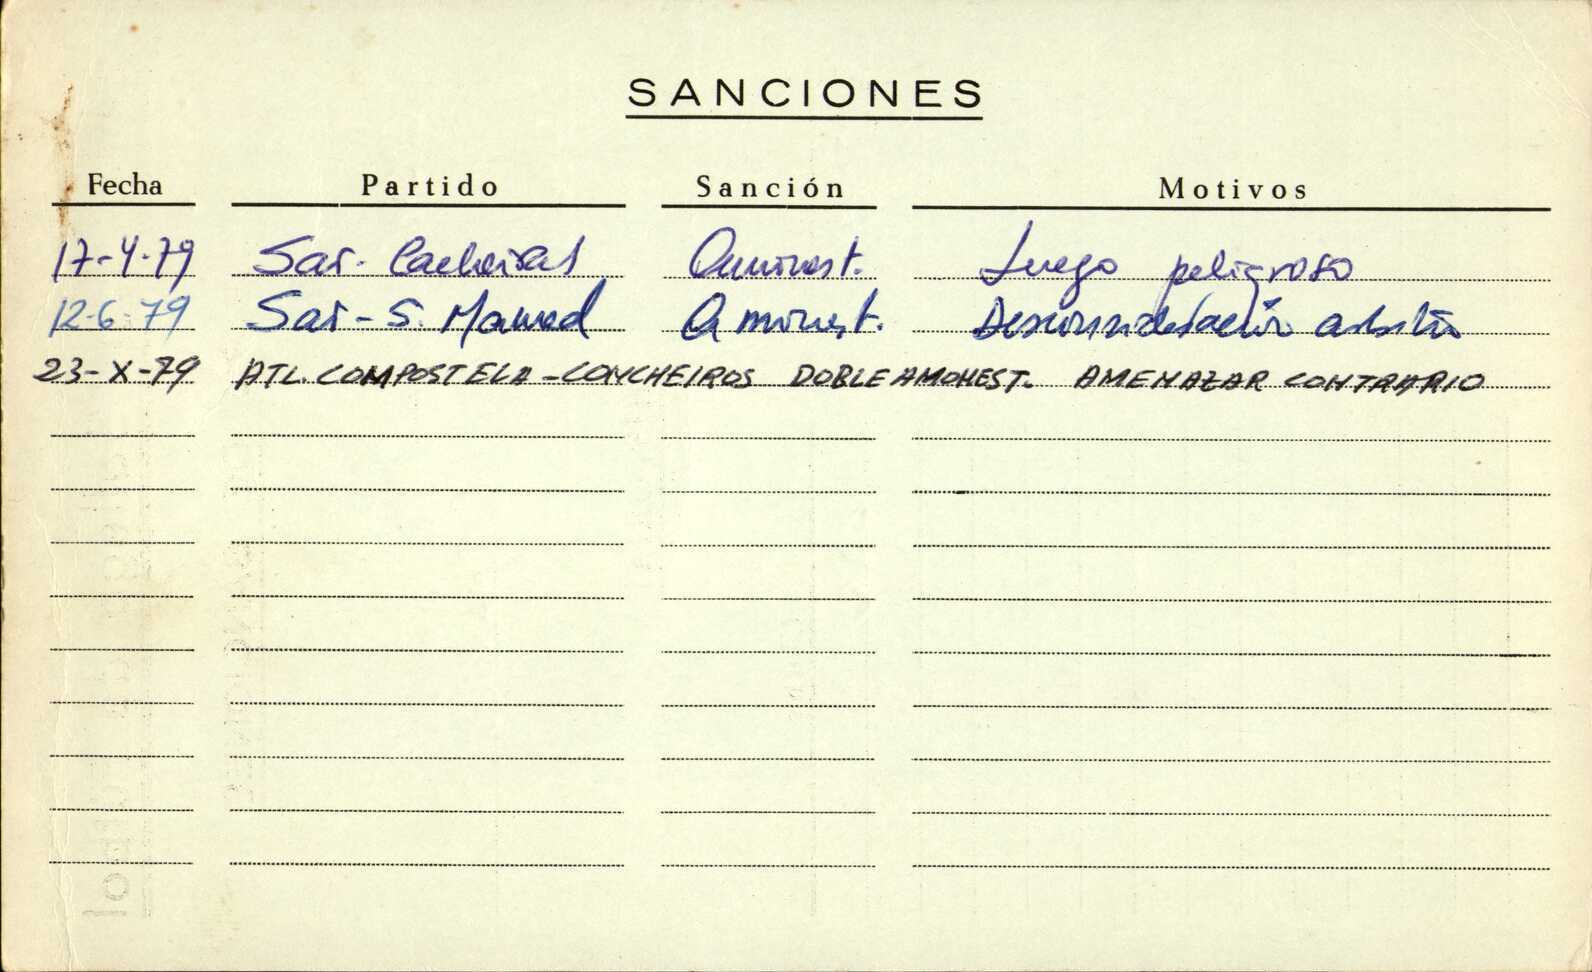 SANCIONES
Fecha Partido Sanción Motivos
17-4-79 Sar-Cacheiras Amonest. Juego peligroso
12-6-79 Sar-S. Mamed Amonest. Desconsideración arbitro
23-X-79 ATL. COMPOSTELA-CONCHEIROS DOBLE AMONEST. AMENAZAR CONTRARIO